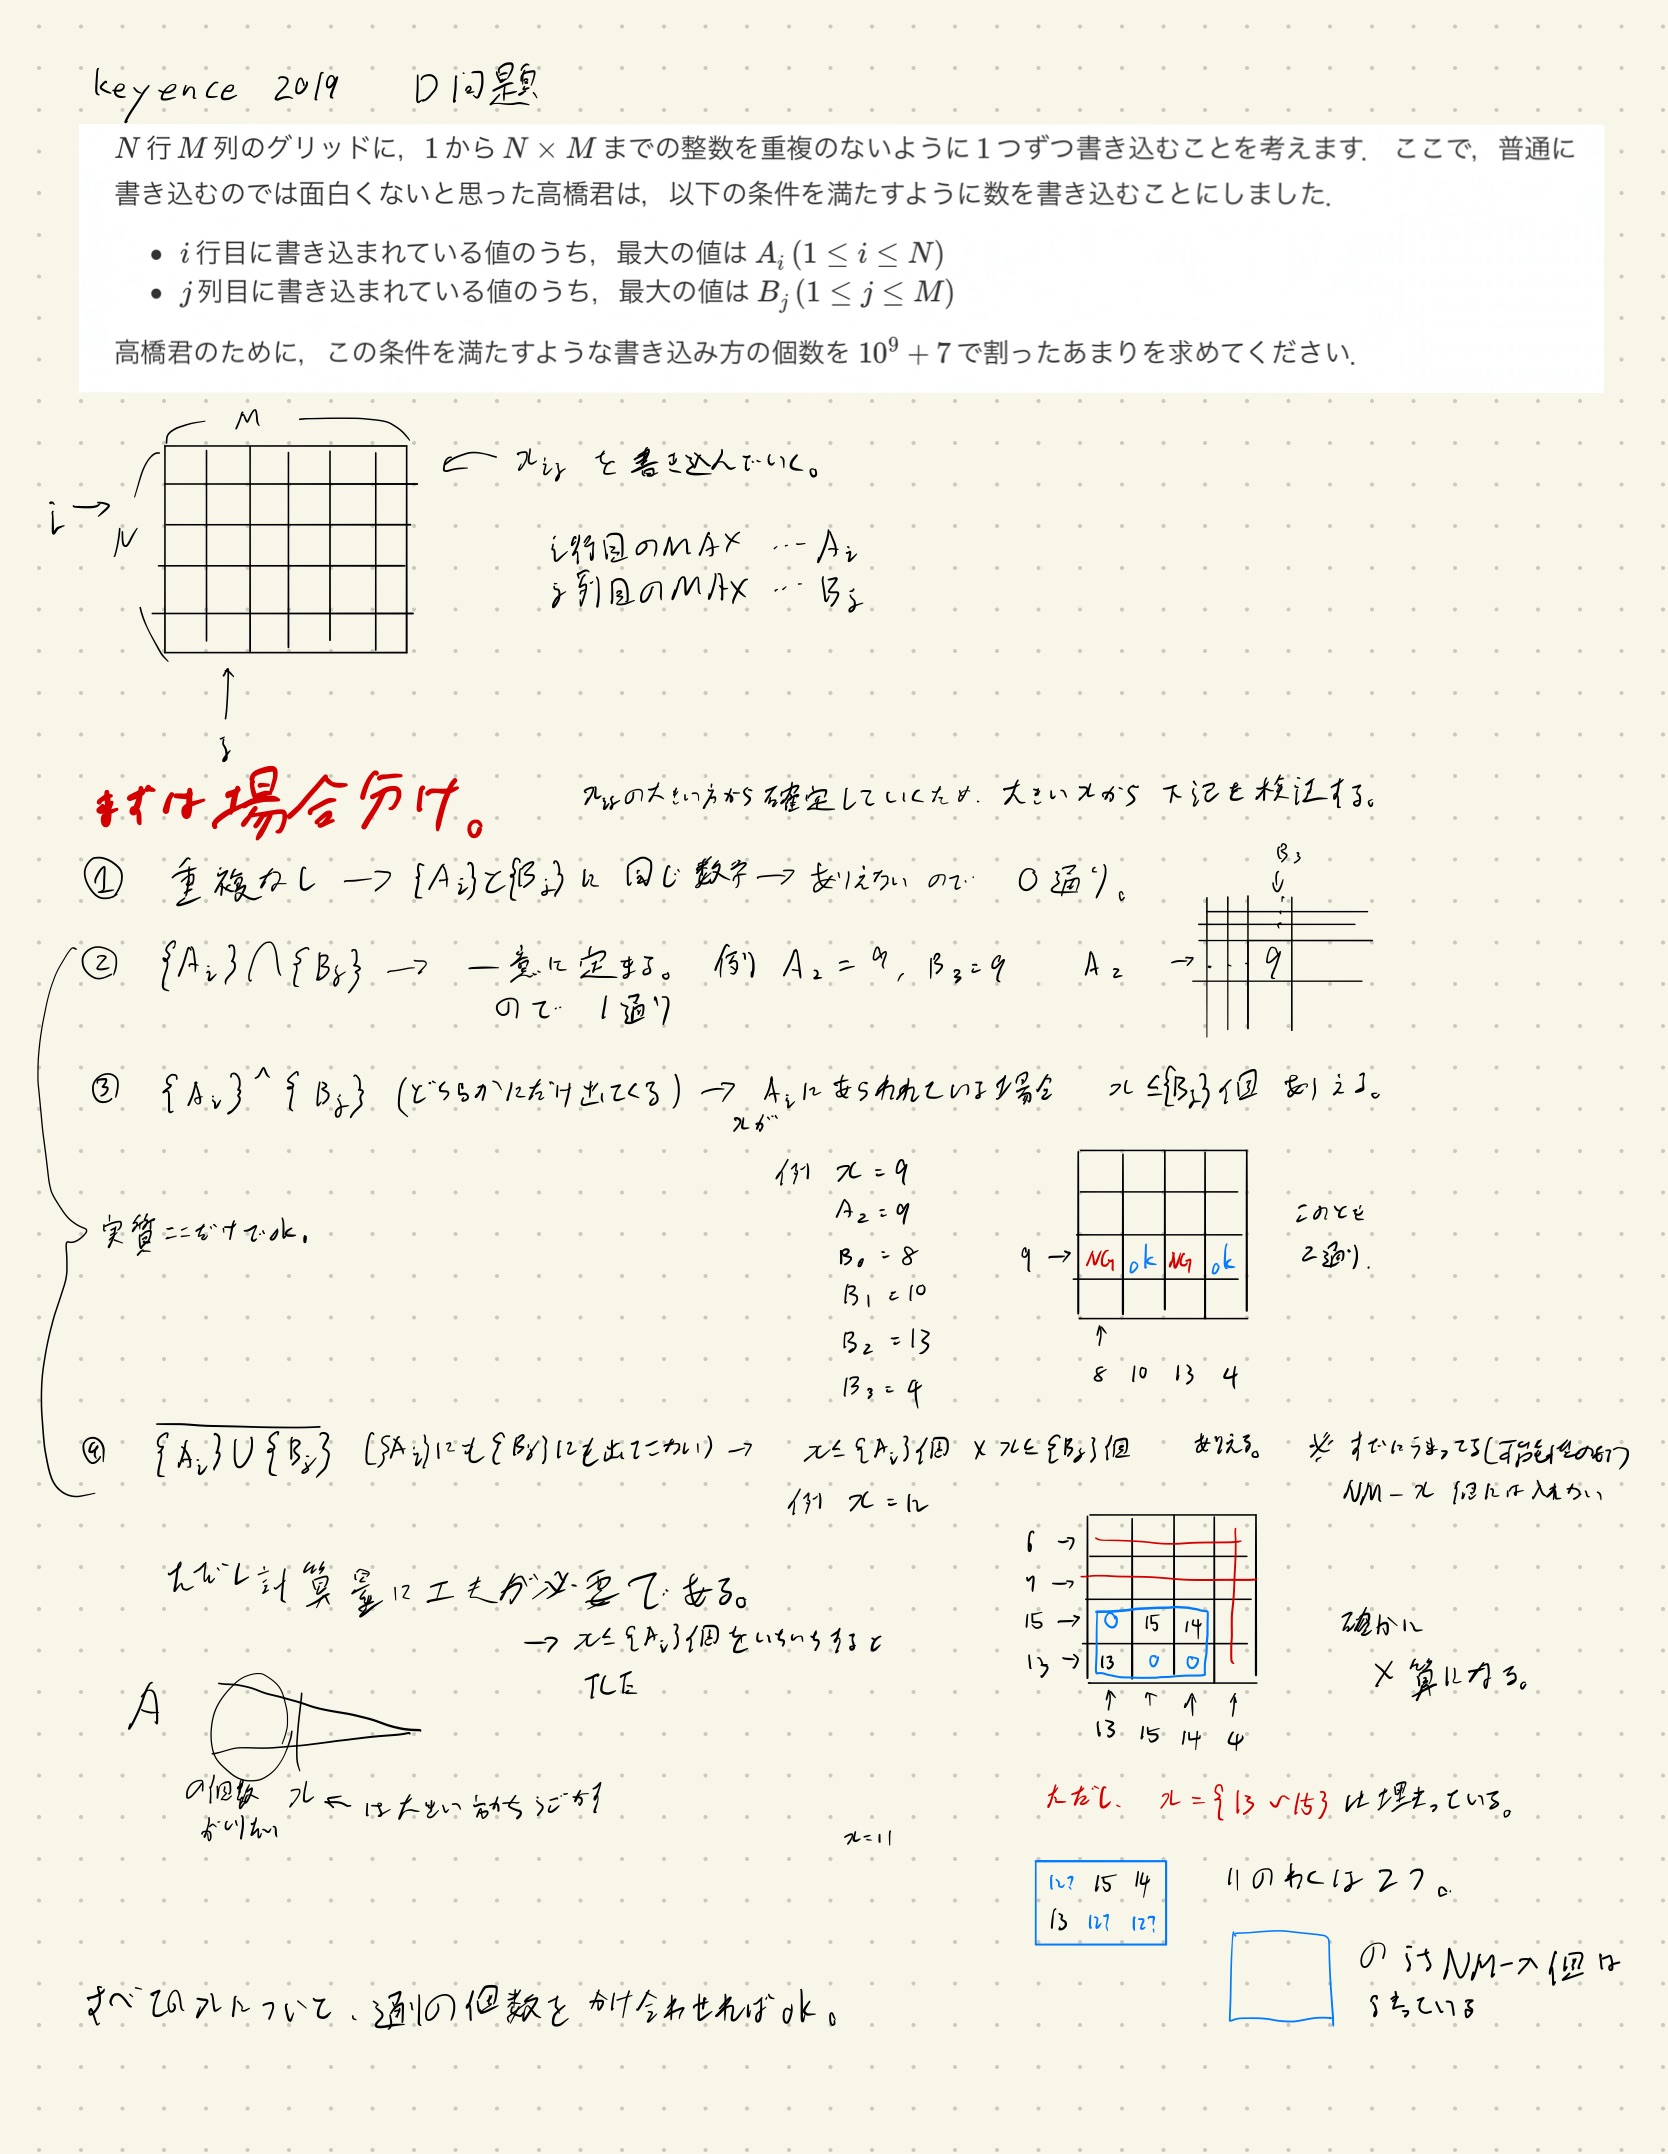 keyence 2019 D問題
N 行 M 列のグリッドに，1 から N × M までの整数を重複のないように 1 つずつ書き込むことを考えます． ここで，普通に
書き込むのでは面白くないと思った高橋君は，以下の条件を満たすように数を書き込むことにしました．
• i 行目に書き込まれている値のうち，最大の値は A_i (1 ≤ i ≤ N)
• j 列目に書き込まれている値のうち，最大の値は B_j (1 ≤ j ≤ M)
高橋君のために，この条件を満たすような書き込み方の個数を 10^9 + 7 で割ったあまりを求めてください．
M
← x_ij を書き込んでいく。
i →
N
i行目のMAX … A_i
j列目のMAX … B_j
↑
j
まずは場合分け。
x_ijの大きい方から確定していくため、大きいxから下記を検証する。
① 重複なし → {A_i}と{B_j}に同じ数字 → ありえないので 0通り。
B_3
↓
② {A_i}∩{B_j} → 一意に定まる。 例) A_2 = 9, B_3 = 9
ので 1通り
A_2 → 9
③ {A_i}^{B_j} (どちらかにだけ出てくる) → A_iにあらわれている場合 x≤{B_j}個 ありえる。
xが
例 x = 9
A_2 = 9
B_0 = 8
B_1 = 10
B_2 = 13
B_3 = 4
9 → NG ok NG ok
↑
8 10 13 4
このとき
2通り.
実質ここだけでok.
④ {A_i}∪{B_j} ({A_i}にも{B_j}にも出てこない) → x≤{A_i}個 × x≤{B_j}個 ありえる。
※ すでにうまってる(可能性の
NM - x 個には入れない
例 x = 12
6 →
7 →
15 → 0 15 14
13 → 13 0 0
↑ ↑ ↑ ↑
13 15 14 4
確かに
× 算になる。
ただし計算量に工夫が必要である。
→ x≤{A_i}個をいちいちすると
TLE
A
の個数
がいりたい
x ← は大きい方からうごかす
ただし、 x = {13 〜 15} は埋まっている。
x = 11
12? 15 14
13 12? 12?
11のわくは2つ。
のうち NM - x 個は
うまっている
すべてのxについて、通りの個数をかけ合わせればok。